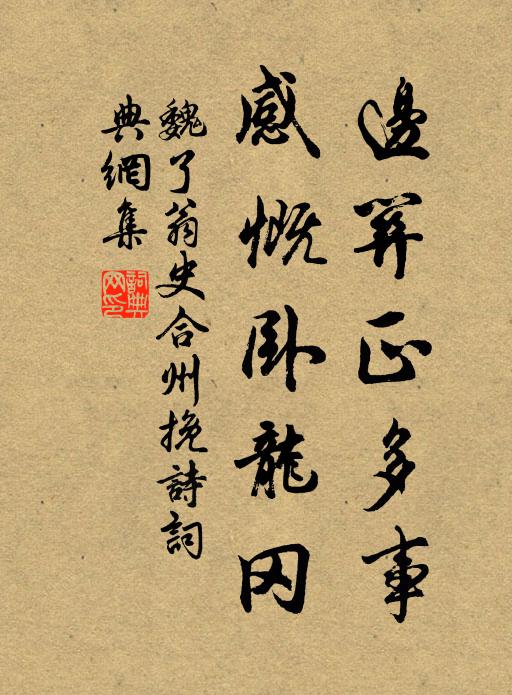 邊關正多事
感慨卧龍冈
魏了翁史合州挽詩詞
典網集
詞典
网印